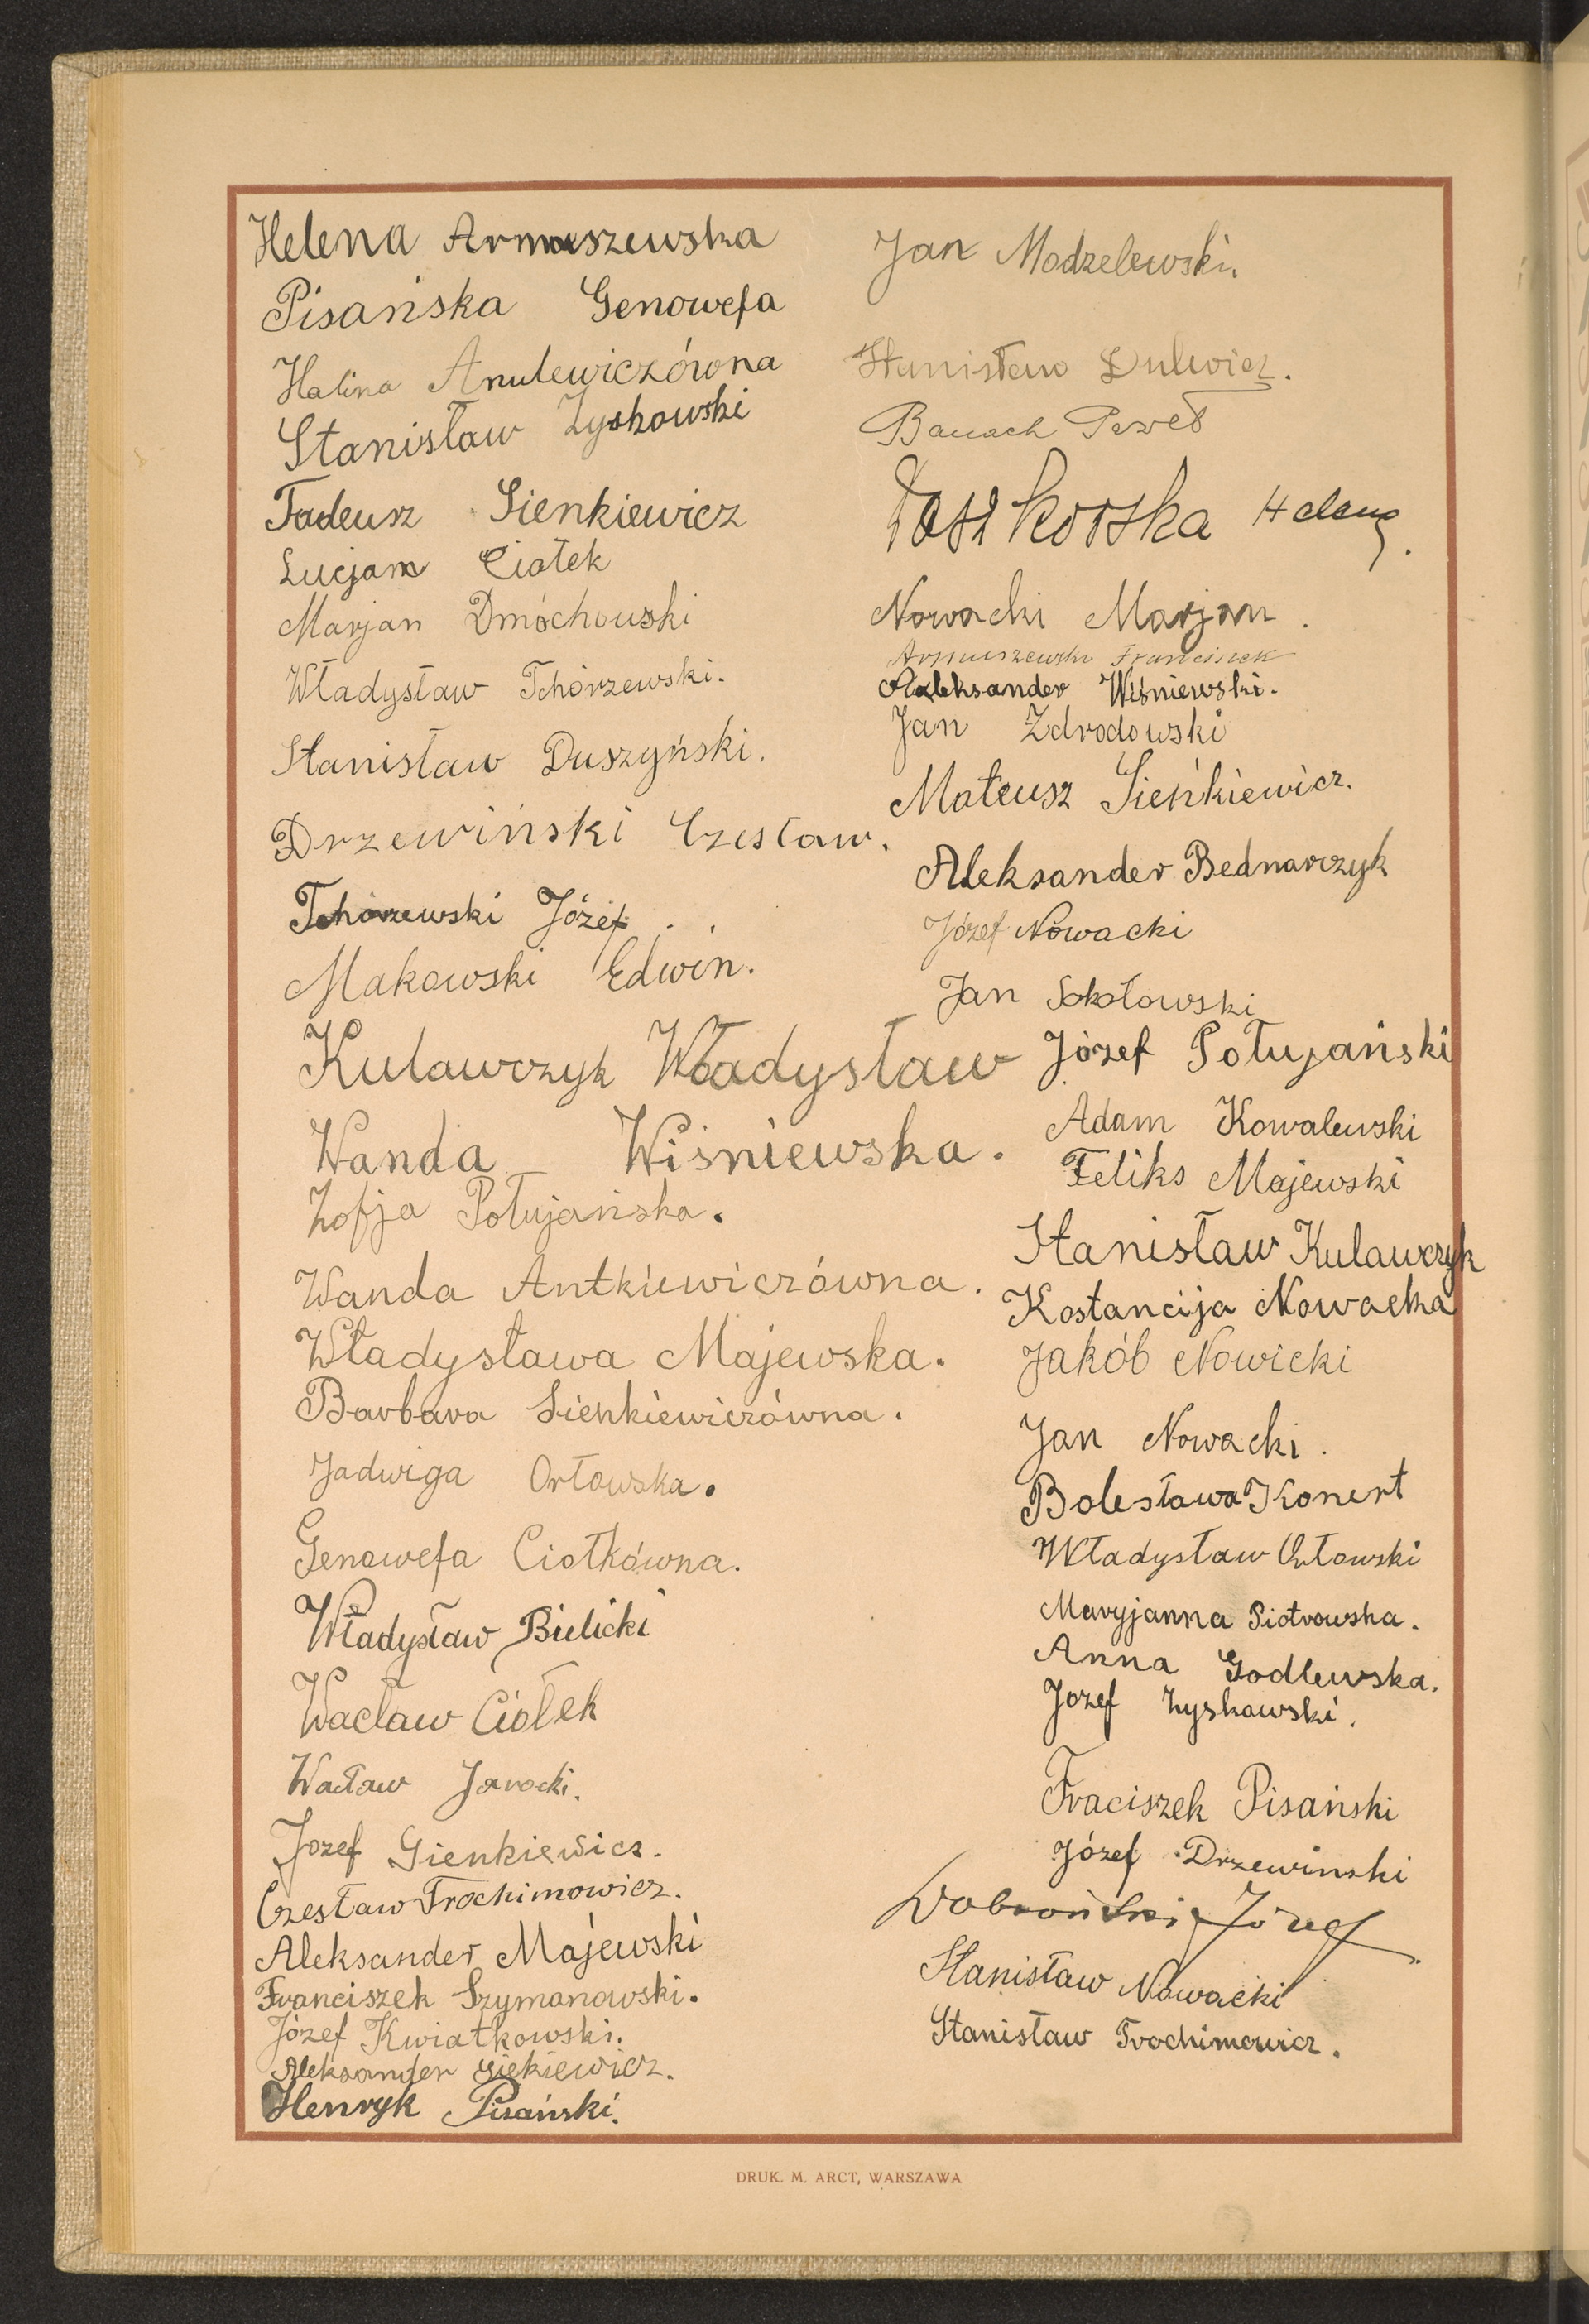 Helena Armuszewska
Pisańska Genowefa
Halina Anulewiczówna
Stanisław Zyskowski
Tadeusz Sienkiewicz
Lucjam Ciołek
Marjan Dmóchowski
Władysław Tchórzewski.
Stanisław Duszyński.
Drzewiński Czesław.
Tchórzewski Józef.
Makowski Edwin.
Kulawczyk Władysław
Wanda Wiśniewska.
Zofja Połujańska.
Wanda Antkiewiczówna.
Władysława Majewska.
Barbara Sienkiewiczówna.
Jadwiga Orłowska.
Genowefa Ciołkówna.
Władysław Bielicki
Wacław Ciołek
Wacław Jarocki.
Jozef Sienkiewicz.
Czesław Trochimowicz.
Aleksander Majewski
Franciszek Szymanowski.
Józef Kwiatkowski.
Aleksander Siekiewicz.
Henryk Pisański.
Jan Modzelewski.
Stanisław
Banach Paweł
Helena.
Nowacki Marjan.
Armuszewski Franciszek
Aleksander Wiśniewski.
Jan Zdrodowski
Mateusz Sieńkiewicz.
Aleksander Bednarczyk
Józef Nowacki
Jan Sokołowski
Józef Połujański
Adam Kowalewski
Feliks Majewski
Stanisław Kulawczyk
Kostancija Nowacka
Jakób Nowicki
Jan Nowacki.
Bolesława Konert
Władysław Orłowski
Maryjanna Piotrowska.
Anna Godlewska.
Jozef Zyskowski.
Fraciszek Pisański
Józef Drzewinski
Dobroński Józef
Stanisław Nowacki
Stanisław Trochimowicz.
DRUK. M. ARCT, WARSZAWA